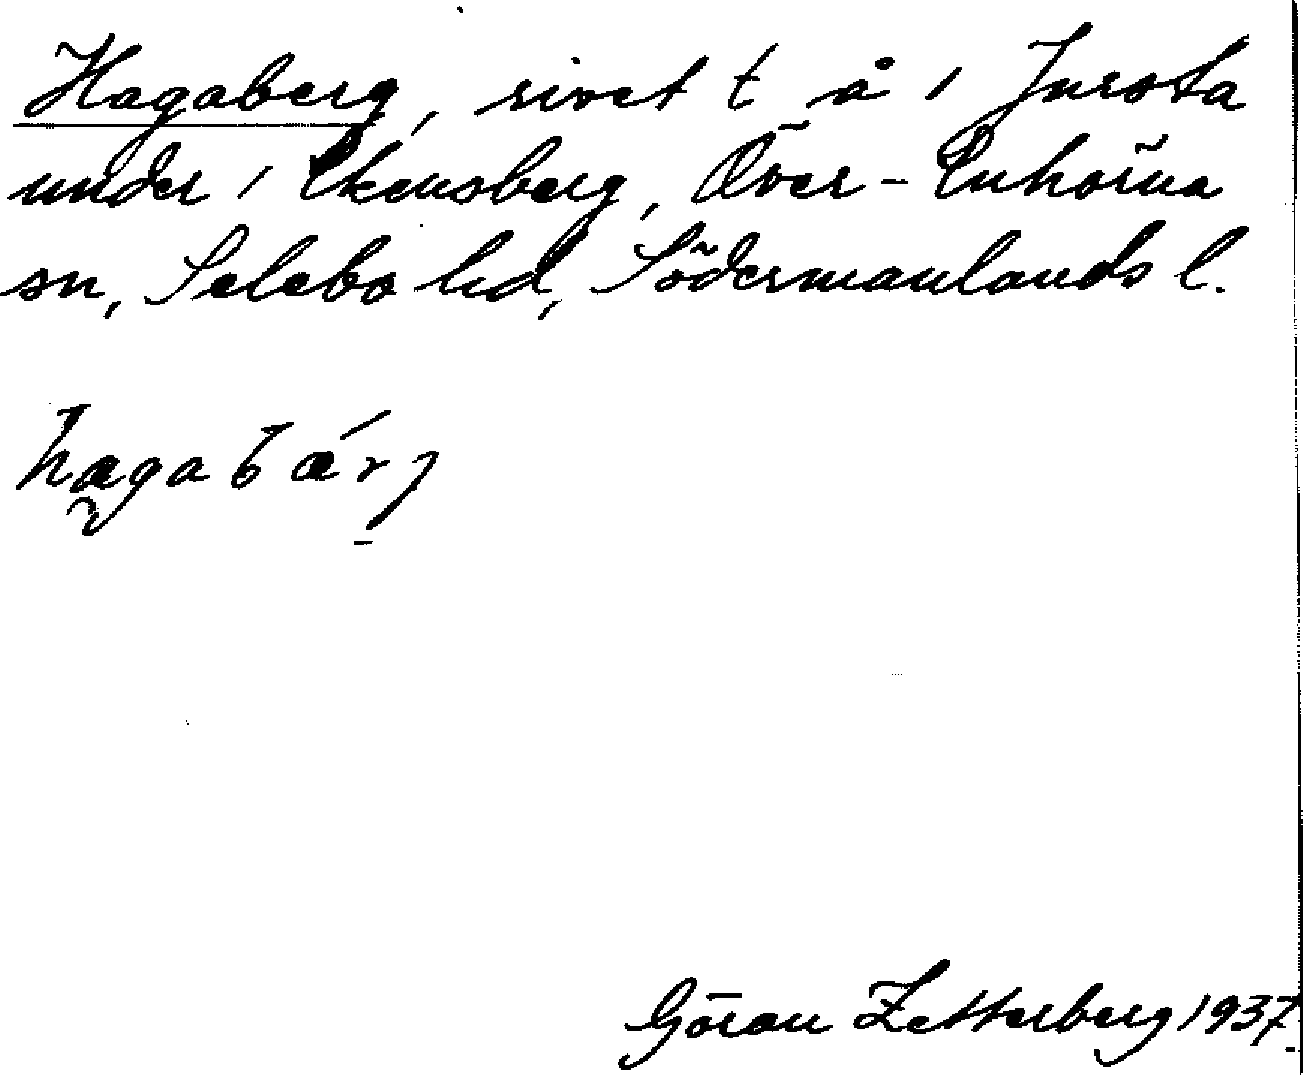 Hagaberg, rivet t å 1 Jursta
under 1 Ekensberg, Över-Enhörna
sn, Selebo hd, Södermanlands l.
hagabǽrj
Göran Zetterberg 1937